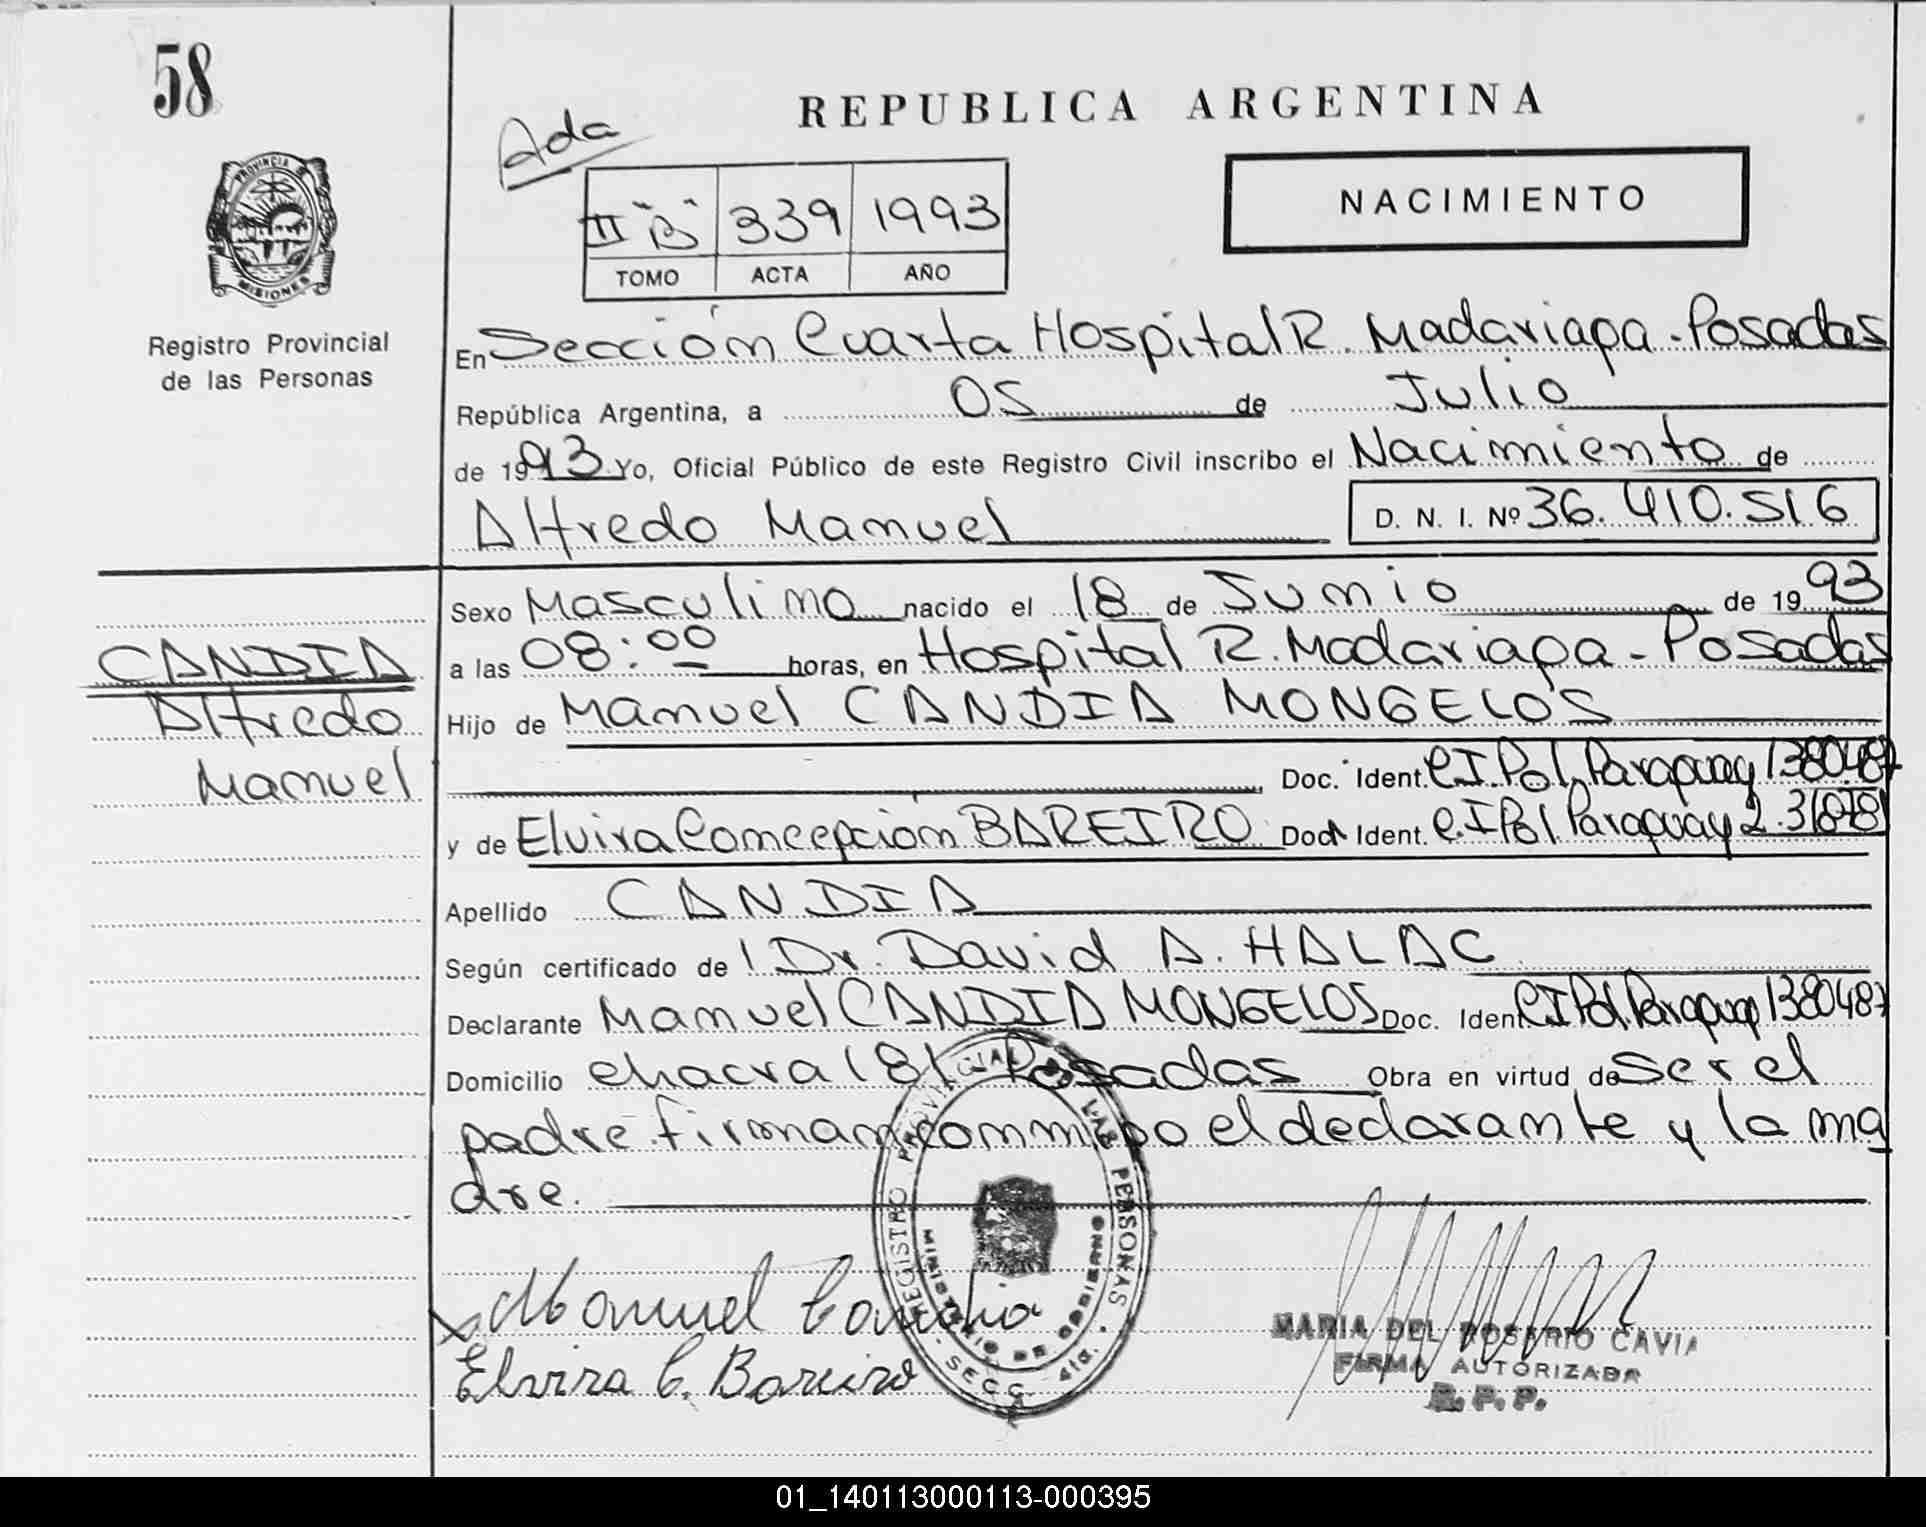 58
REPUBLICA ARGENTINA
Ada
NACIMIENTO
II "B" 339 1993
TOMO ACTA AÑO
PROVINCIA
MISIONES
Registro Provincial
de las Personas
En Sección Cuarta Hospital R. Madariaga - Posadas
República Argentina, a 05 de Julio
de 1993 Yo, Oficial Público de este Registro Civil inscribo el Nacimiento de
Alfredo Manuel D. N. I. Nº 36.410.516
Sexo Masculino nacido el 18 de Junio de 1993
a las 08:00 horas, en Hospital R. Madariaga - Posadas
CANDIA
Alfredo
Manuel
Hijo de Manuel CANDIA MONGELOS
Doc. Ident. C.I.Pol. Paraguay 1380487
y de Elvira Concepción BAREIRO Doc. Ident. C.I.Pol. Paraguay
Apellido CANDIA
Según certificado de l Dr. David A. HALAC
Declarante Manuel CANDIA MONGELOS Doc. Ident. C.I.Pol. Paraguay 1380487
Domicilio chacra 181 Posadas Obra en virtud de ser el
padre. firman conmigo el declarante y la ma
dre.
REGISTRO PROVINCIAL DE LAS PERSONAS
MINISTERIO DE GOBIERNO
SECC. 4ta.
Manuel Candia
Elvira C. Bareiro
MARIA DEL ROSARIO CAVIA
FIRMA AUTORIZADA
R. P. P.
01_140113000113-000395